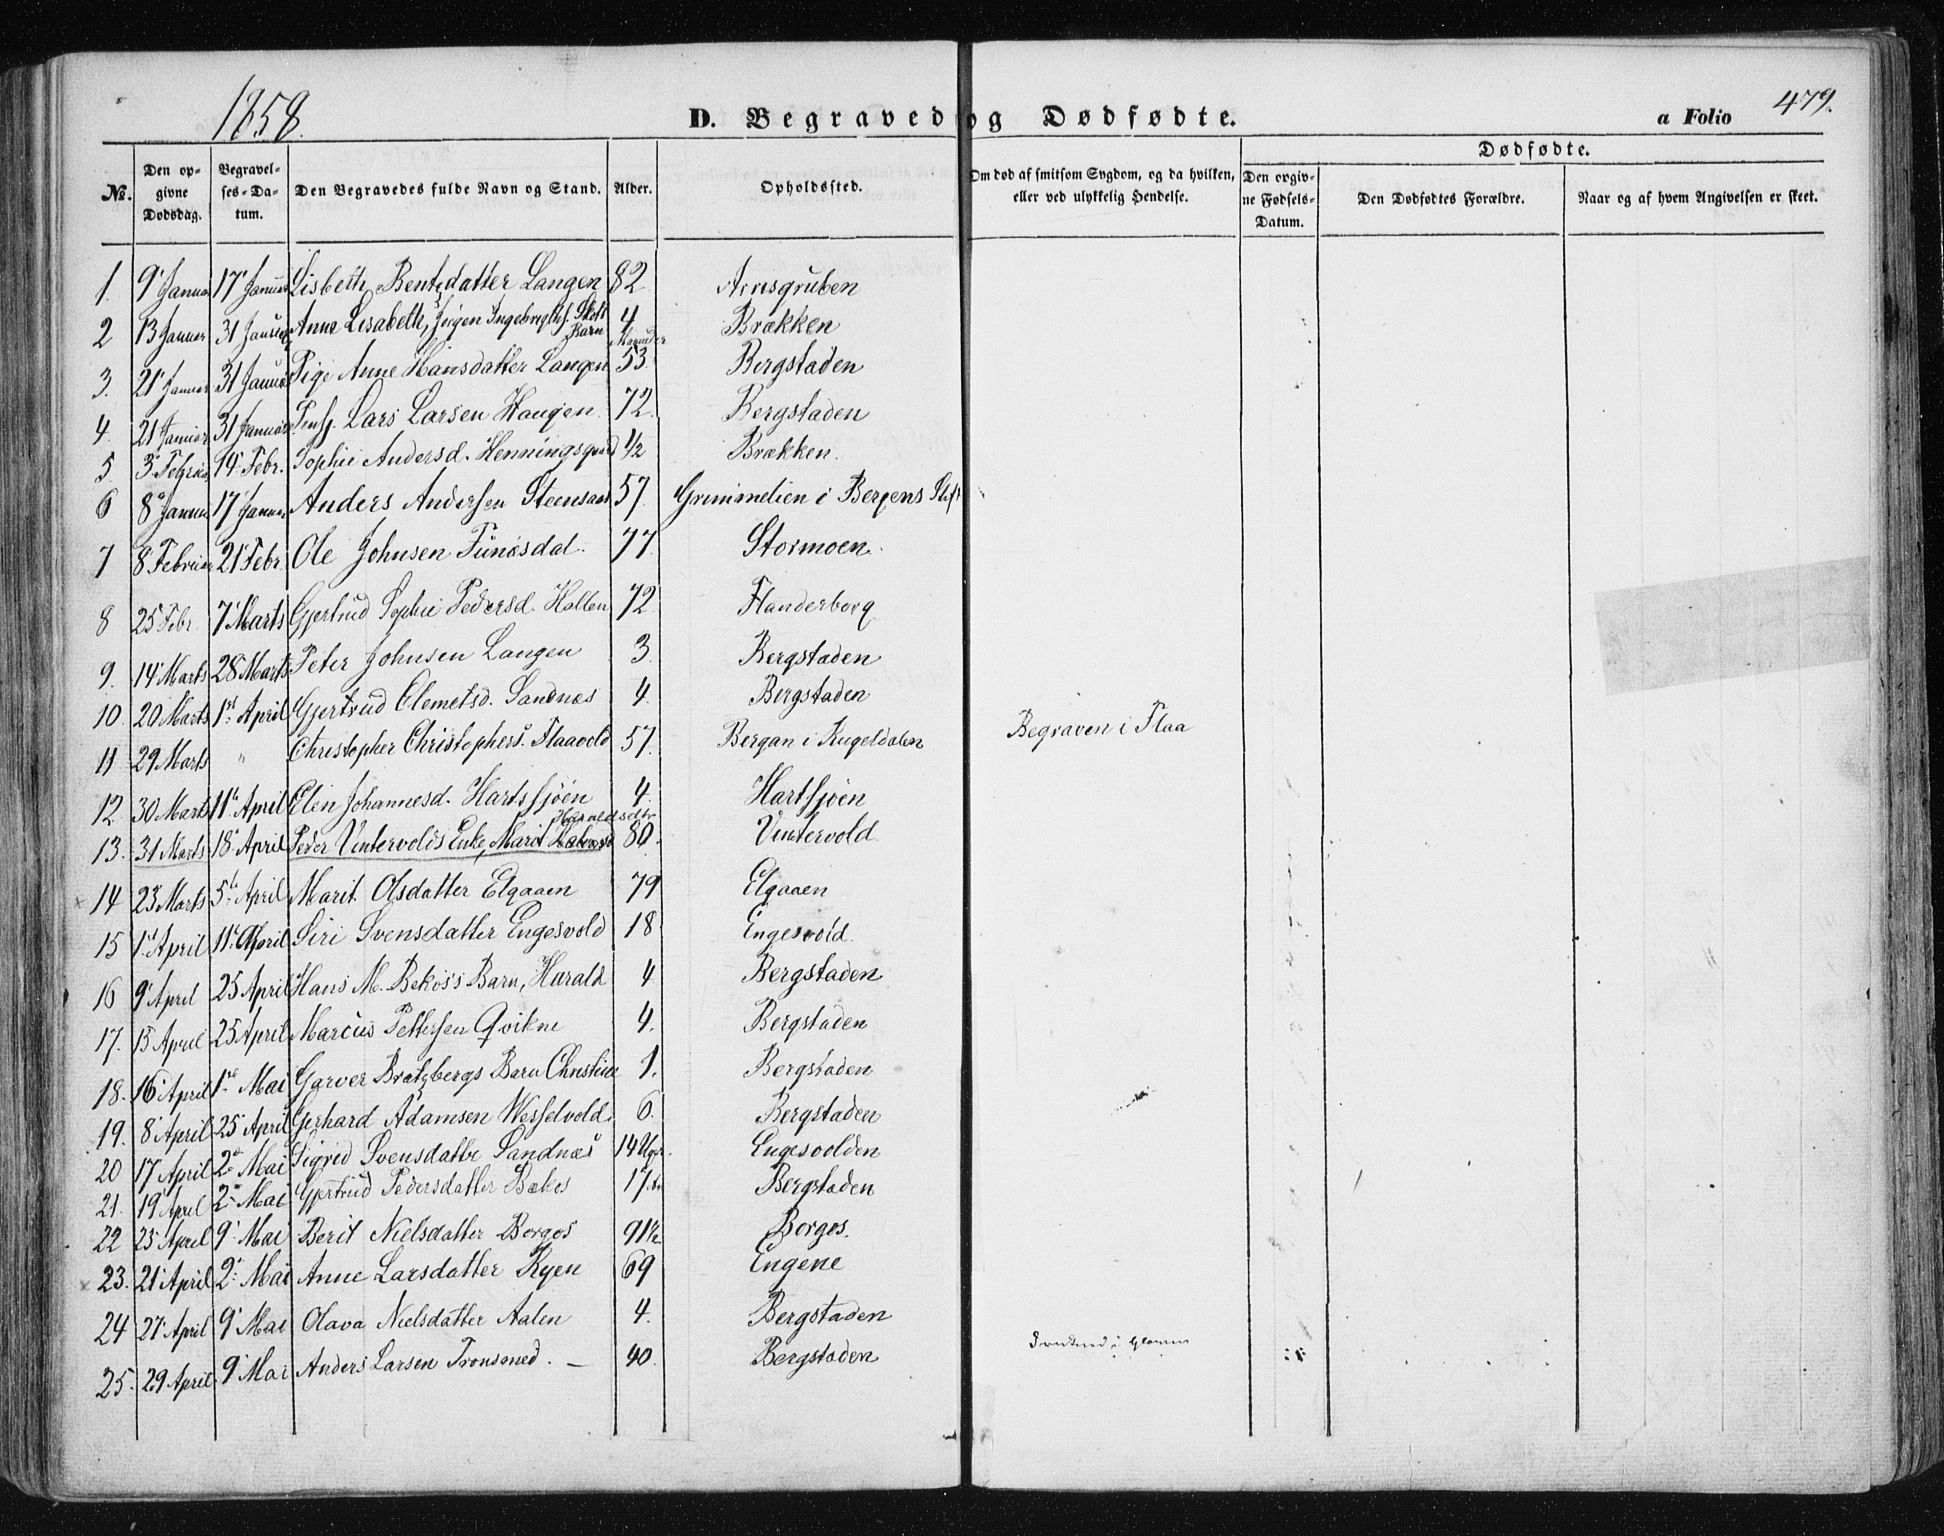 1858.
D. Begravede og Dødfødte.
a Folio 479.
No.
Den opgivne Dødsdag.
Begravelses-Datum.
Den Begravedes fulde Navn og Stand.
Alder.
Opholdssted.
Om død af smitsom Sygdom, og da hvilken, eller ved ulykkelig Hendelse.
Dødfødte.
Den opgivne Fødsels-Datum.
Den Dødfødtes Forældre.
Naar og af hvem Angivelsen er skeet.
1. 9' Januar 17' Januar Lisbeth Bentzdatter Langen 82 Arvsgruben
2 13 Januar 31 Januar Anne Lisabeth, Jørgen Ingebrigths. Barn 4 Maaneder Brækken
3. 21' Januar 31 Januar Pige Anne Hansdatter Langen 53. Bergstaden
4. 21 Januar 31 Januar Pens. Lars Larsen Haugen 72. Bergstaden
5 3' Februar 14' Febr. Sophie Andersd. Henningsgaard 1/2 Brækken.
6 8' Januar 17' Januar Anders Andersen Steensaas 57. Grimmelien i Bergens Stift
7 8' Februar 21' Febr. Ole Johnsen Funæsdal. 77. Stormoen.
8 25' Febr. 7' Marts Gjertrud Sophie Pedersd. Hollen 72. Flanderborg
9. 14' Marts 28' Marts Peter Johnsen Langen 3. Bergstaden
10. 20 Marts 1st April Gjertrud Elemetsd. Sandnæs 4. Bergstaden
11 29 Marts " Christopher Christophers. Flaavold 57. Bergan i Kugeldalen Begraven i Flaa
12 30 Marts 11te April Elen Johannesd. Hartssjöen 4. Hartsjöen
Haraldsdtr
13. 31 Marts 18' April Peder Vintervolds Enke, Marit 80. Vintervold
14 23' Marts 5te April Marit Olsdatter Elgaaen 79 Elgaaen
15 1st April 11te April Siri Svensdatter Engesvold 18 Engesvold.
16 9' April 25 April Hans M. Bekos's Barn, Harald 4 Bergstaden
17. 15 April 25 April Marcus Pettersen Qvikne 4. Bergstaden
18. 16' April 1st Mai Garver Bratzbergs Barn Christine 1. Bergstaden
19. 8' April 25' April Gerhard Adamsen Wesselvold. 6. Bergstaden
20 17 April 2den Mai Sigrid Svensdattr Sandnæs 14 Ugr. Engesvolden
21. 19' April 2den Mai Gjertrud Pedersdatter Bækos 17 Bergstaden
22 25' April 9' Mai Berit Nielsdatter Borgos 91½ Borgos.
23. 21' April 2' Mai Anne Larsdatter Ryen 69 Engene
24 27' April 9' Mai Olava Nielsdatter Aalen 4. Bergstaden
25. 29 April 9' Mai Anders Larsen Tronsmed. — 40. Bergstaden Druknet i Glomen